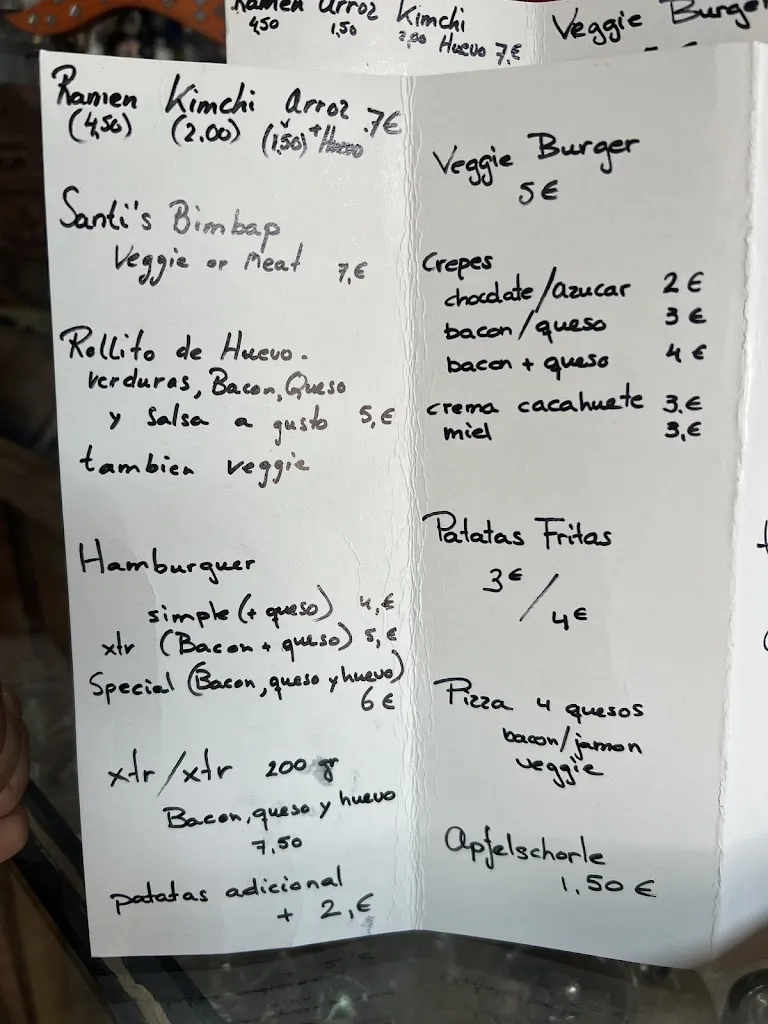 Ramen Arroz Kimchi
4,50 1,50 2,00 Huevo 7€
Veggie Burger
Ramen Kimchi Arroz 7€
(4,50) (2.00) (1,50) + Huevo
Santi's Bimbap
Veggie or Meat 7,€
Rollito de Huevo.
verduras, Bacon, Queso
y Salsa a gusto 5,€
tambien veggie
Hamburguer
simple (+ queso) 4,€
xtr (Bacon + queso) 5,€
Special (Bacon, queso y huevo)
6€
xtr/xtr 200 gr
Bacon, queso y huevo
7,50
patatas adicional
+ 2,€
Veggie Burger
5€
Crepes
chocolate/azucar 2€
bacon/queso 3€
bacon + queso 4€
crema cacahuete 3.€
miel 3,€
Patatas Fritas
3€ / 4€
Pizza 4 quesos
bacon/jamon
veggie
Apfelschorle
1,50€